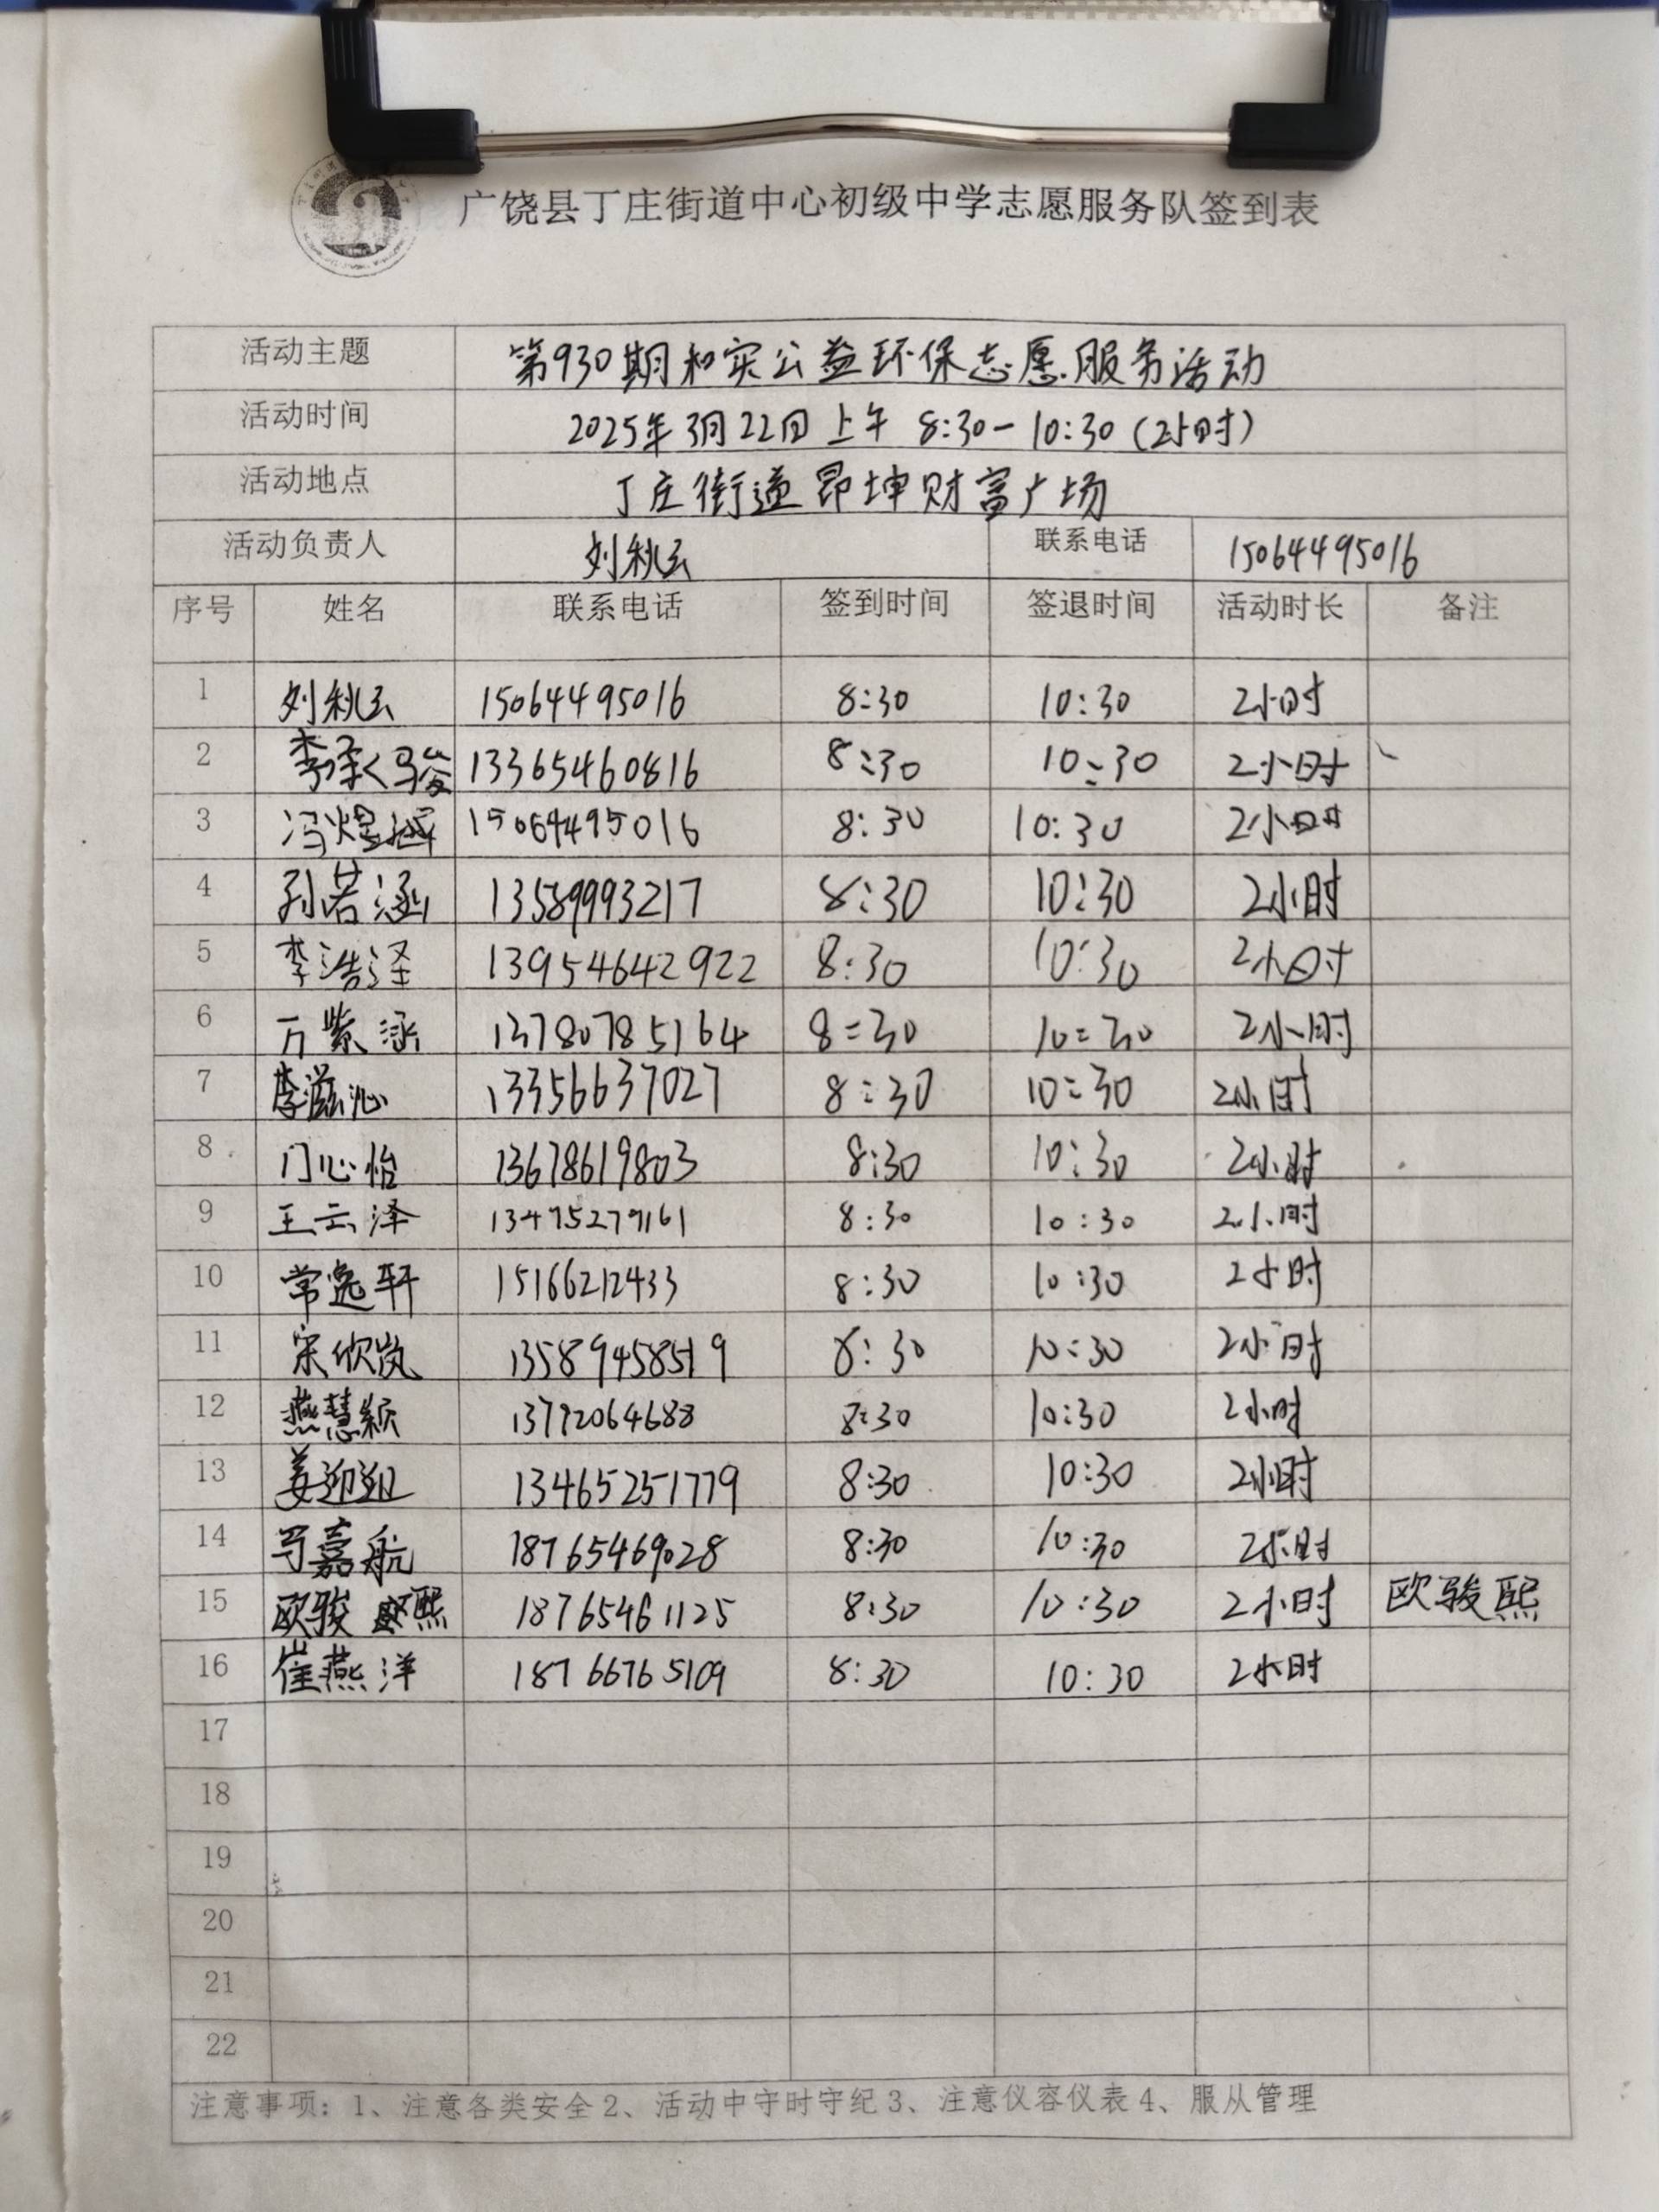 广饶县丁庄街道中心初级中学志愿服务队签到表
活动主题 第930期和实公益环保志愿服务活动
活动时间 2025年3月22日上午 8:30-10:30(2小时)
活动地点 丁庄街道昂坤财富广场
活动负责人 刘秋云 联系电话 15064495016
序号 姓名 联系电话 签到时间 签退时间 活动时长 备注
1 刘秋云 15064495016 8:30 10:30 2小时
2 13365460816 8:30 10:30 2小时
3 冯煜越 15064495016 8:30 10:30 2小时
4 孙若涵 13589993217 8:30 10:30 2小时
5 李浩泽 13954642922 8:30 10:30 2小时
6 万紫涵 13780785164 8:30 10:30 2小时
7 李滋沁 13356637027 8:30 10:30 2小时
8 门心怡 13678619803 8:30 10:30 2小时
9 王云泽 13475279161 8:30 10:30 2小时
10 常逸轩 15166212433 8:30 10:30 2小时
11 宋欣岚 13589458519 8:30 10:30 2小时
12 燕慧颖 13792064688 8:30 10:30 2小时
13 姜迎迎 13465251779 8:30 10:30 2小时
14 嘉航 18765469028 8:30 10:30 2小时
15 欧骏熙 18765461125 8:30 10:30 2小时 欧骏熙
16 崔燕洋 18766765109 8:30 10:30 2小时
17
18
19
20
21
22
注意事项：1、注意各类安全2、活动中守时守纪3、注意仪容仪表4、服从管理